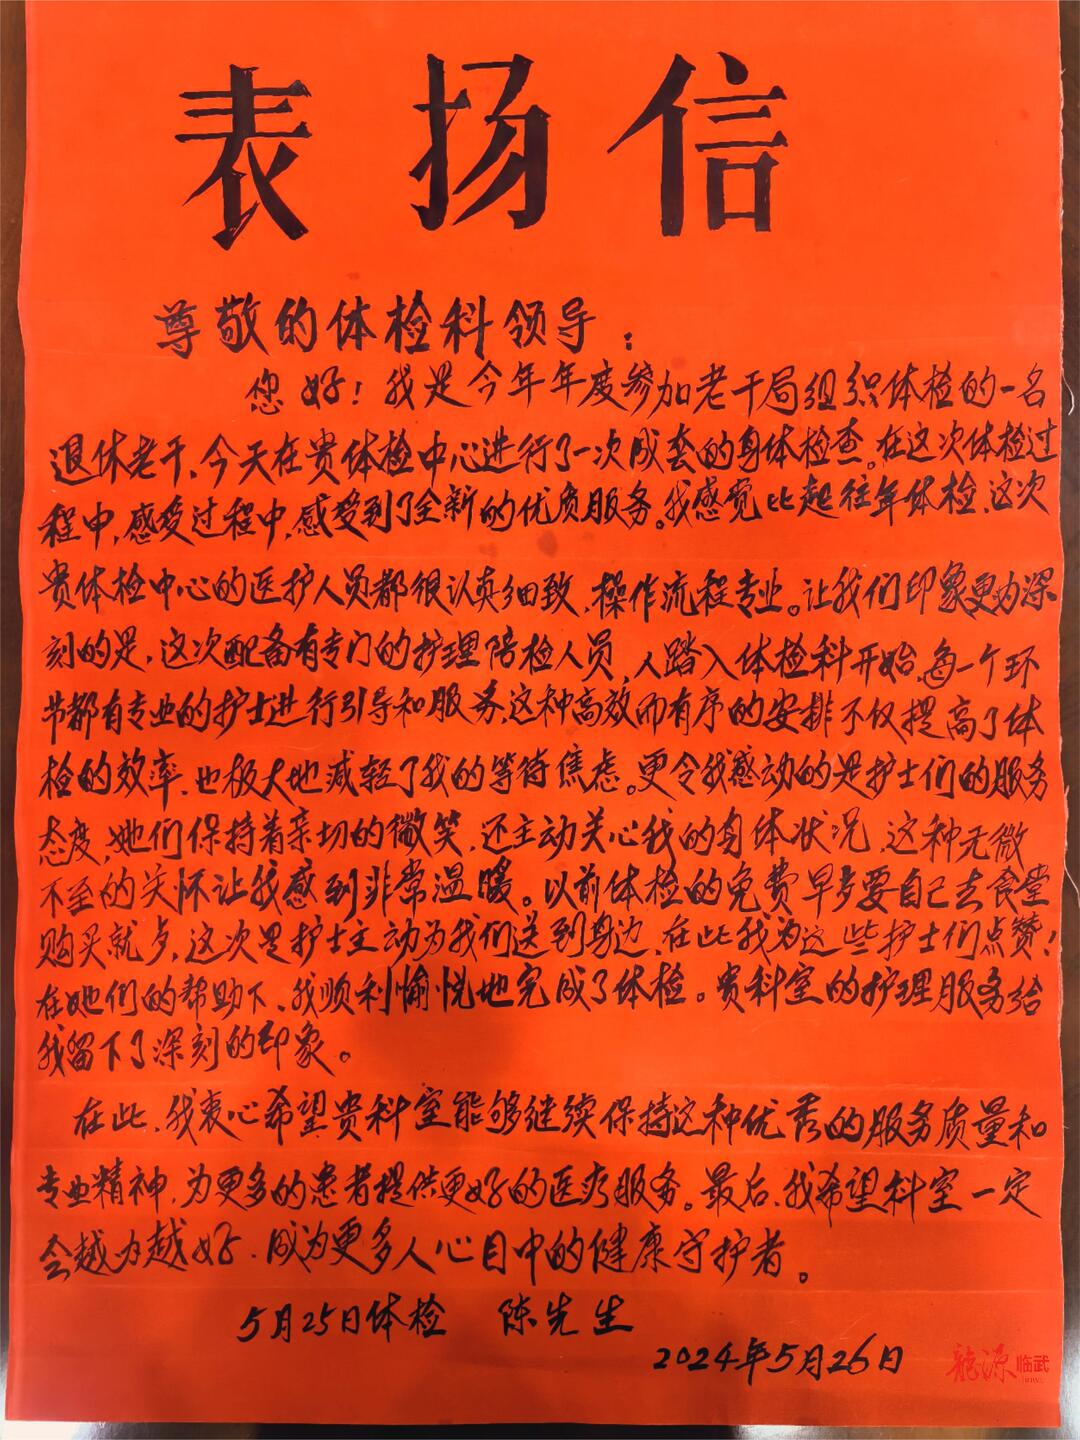 表扬信
尊敬的体检科领导：
您好！我是今年年度参加老干局组织体检的一名
退休老干，今天在贵体检中心进行了一次成套的身体检查。在这次体检过
程中，感受过程中，感受到了全新的优质服务。我感觉比起往年体检，这次
贵体检中心的医护人员都很认真细致，操作流程专业。让我们印象更为深
刻的是，这次配备有专门的护理陪检人员，人踏入体检科开始，每一个环
节都有专业的护士进行引导和服务，这种高效而有序的安排不仅提高了体
检的效率，也极大地减轻了我的等待焦虑。更令我感动的是护士们的服务
态度，她们保持着亲切的微笑，还主动关心我的身体状况，这种无微
不至的关怀让我感到非常温暖。以前体检的免费早歺要自己去食堂
购买就歺，这次是护士主动为我们送到身边，在此我为这些护士们点赞！
在她们的帮助下，我顺利愉悦地完成了体检。贵科室的护理服务给
我留下了深刻的印象。
在此，我衷心希望贵科室能够继续保持这种优秀的服务质量和
专业精神，为更多的患者提供更好的医疗服务。最后，我希望科室一定
会越办越好，成为更多人心目中的健康守护者。
5月25日体检 陈先生
2024年5月26日
龙源临武